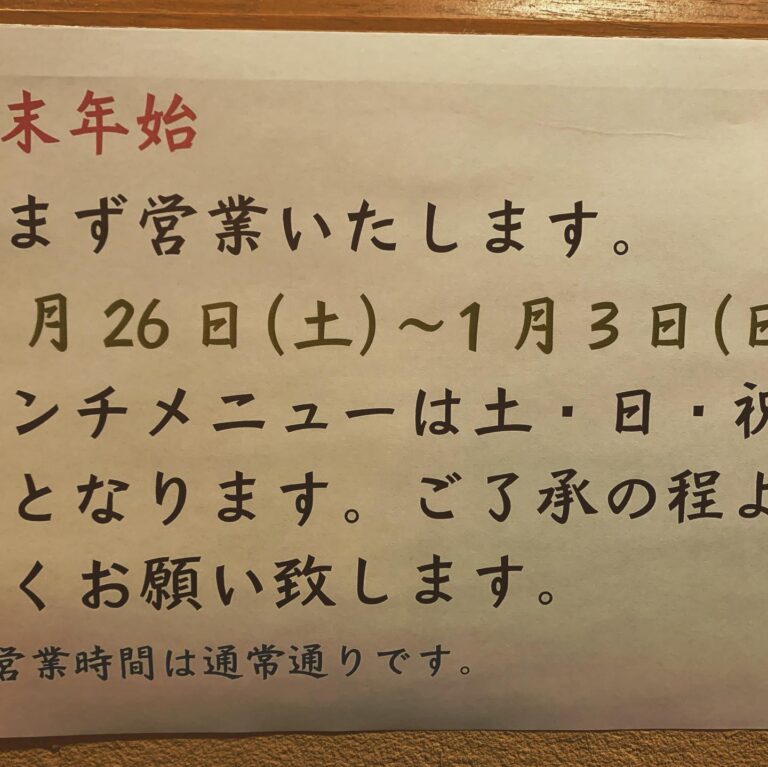 末年始
まず営業いたします。
月26日(土)～1月3日(日
ンチメニューは土・日・祝
となります。ご了承の程よ
くお願い致します。
営業時間は通常通りです。